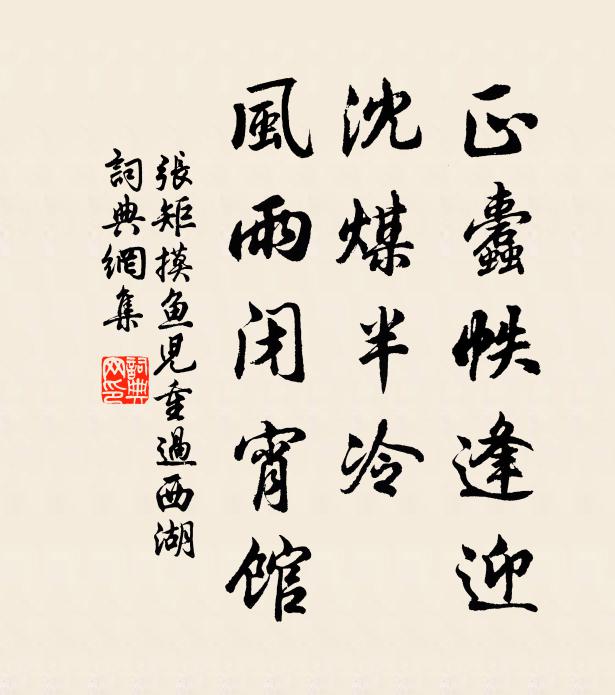 正蠹帙逢迎
沈煤半冷
風雨闭宵館
張矩摸鱼児重過西湖
詞典網集
詞典网印